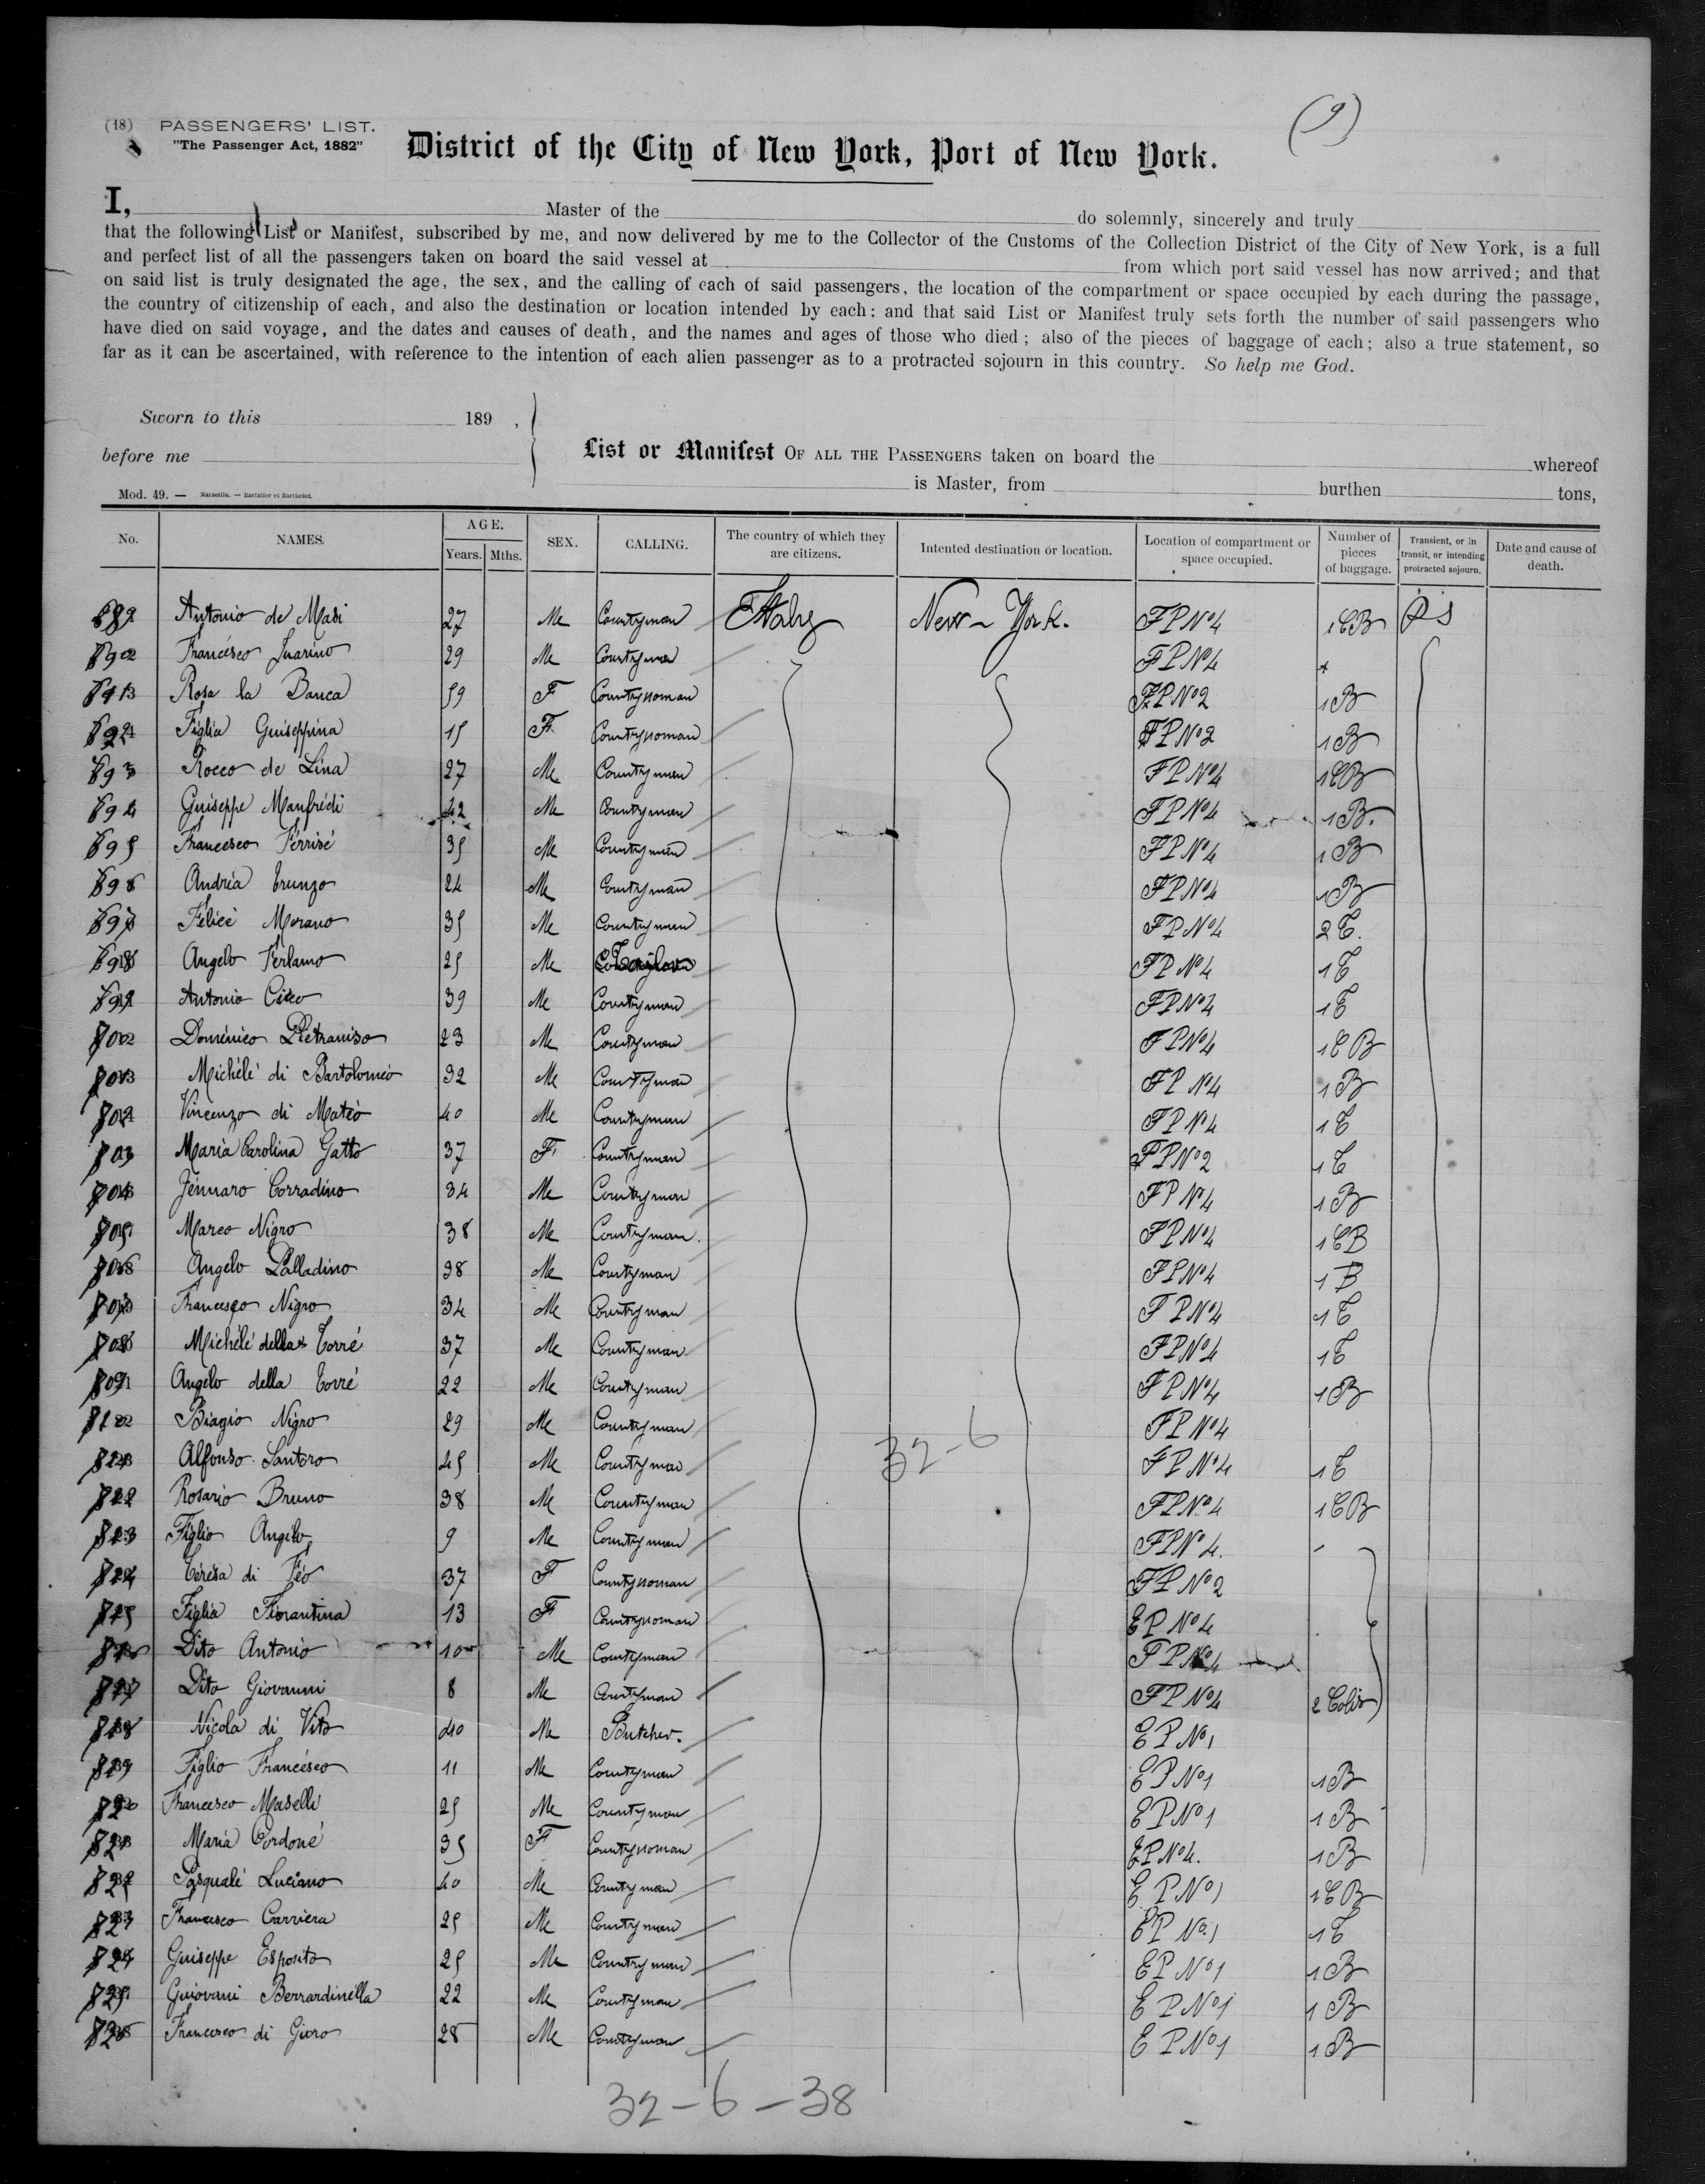 (9)
(18) PASSENGERS' LIST.
"The Passenger Act, 1882"
District of the City of New York, Port of New York.
I, Master of the do solemnly, sincerely and truly
that the following List or Manifest, subscribed by me, and now delivered by me to the Collector of the Customs of the Collection District of the City of New York, is a full
and perfect list of all the passengers taken on board the said vessel at from which port said vessel has now arrived; and that
on said list is truly designated the age, the sex, and the calling of each of said passengers, the location of the compartment or space occupied by each during the passage,
the country of citizenship of each, and also the destination or location intended by each: and that said List or Manifest truly sets forth the number of said passengers who
have died on said voyage, and the dates and causes of death, and the names and ages of those who died; also of the pieces of baggage of each; also a true statement, so
far as it can be ascertained, with reference to the intention of each alien passenger as to a protracted sojourn in this country. So help me God.
Sworn to this 189 ,
before me
List or Manifest OF ALL THE PASSENGERS taken on board the whereof
is Master, from burthen tons,
Mod. 49. — Marseille. — Barlatier et Barthelet.
No. NAMES. AGE. Years. Mths. SEX. CALLING. The country of which they are citizens. Intented destination or location. Location of compartment or space occupied. Number of pieces of baggage. Transient, or in transit, or intending protracted sojourn. Date and cause of death.
689 Antonio de Masi 27 Me Countryman Italy New-York. FP No4 1CB PS
Francésco 29 Me Countryman FP No4
Rosa la Banca 59 F Countrywoman FP No2 1B
Figlia Guiseppina 15 F Countrywoman FP No2 1B
693 Rocco de Lina 27 Me Countryman FP No4 1CB
694 Guiseppe Manfrédi 42 Me Countryman FP No4 1B.
695 Francesco Ferrisé 35 Me Countryman FP No4 1B
Andria Trunzo 24 Me Countryman FP No4 1B
697 Félicé Morano 35 Me Countryman FP No4 2C.
698 Angelo Ferlamo 25 Me FP No4 1C
699 Antonio Cisco 39 Me Countryman FP No4 1C
Doménico Pietraniso 23 Me Countryman FP No4 1CB
Michélé di Bartoloméo 32 Me Countryman FP No4 1B
Vincenzo di Matéo 40 Me Countryman FP No4 1C
803 Maria Carolina Gatto 37 F Countryman FP No2 1C
804 Jénnaro Corradino 34 Me Countryman FP No4 1B
805 Marco Nigro 38 Me Countryman. FP No4 1CB
Angelo Palladino 38 Me Countryman FP No4 1B
Francesco Nigro 34 Me Countryman FP No4 1C
Michélé della Torré 37 Me Countryman FP No4 1C
809 Angelo della Torré 22 Me Countryman FP No4 1B
Biagio Nigro 29 Me Countryman FP No4
Alfonso Santoro 45 Me Countryman FP No4 1C
Rosario Bruno 38 Me Countryman FP No4 1CB
Figlio Angélo 9 Me Countryman FP No4. -
Térésa di Féo 37 F Countrywoman FP No2
Figlia Fiorantina 13 F Countrywoman EP No4
Dito Antonio 10 Me Countryman FP No4
Dito Giovanni 8 Me Countryman FP No4 2 Colis
Nicola di Vito 40 Me Butcher. EP No1
Figlio Francésco 11 Me Countryman EP No1 1B
Francesco Maselli 25 Me Countryman EP No1 1B
Maria Cordoné 35 F Countrywoman EP No4. 1B
Pasqualé Luciano 40 Me Countryman EP No1 1CB
Francesco Carriera 25 Me Countryman EP No1 1C
824 Guiseppe Esposito 25 Me Countryman EP No1 1B
825 Guiovani Berrardinélla 22 Me Countryman EP No1 1B
Francesco di Gioro 28 Me Countryman EP No1 1B
32-6
32-6-38